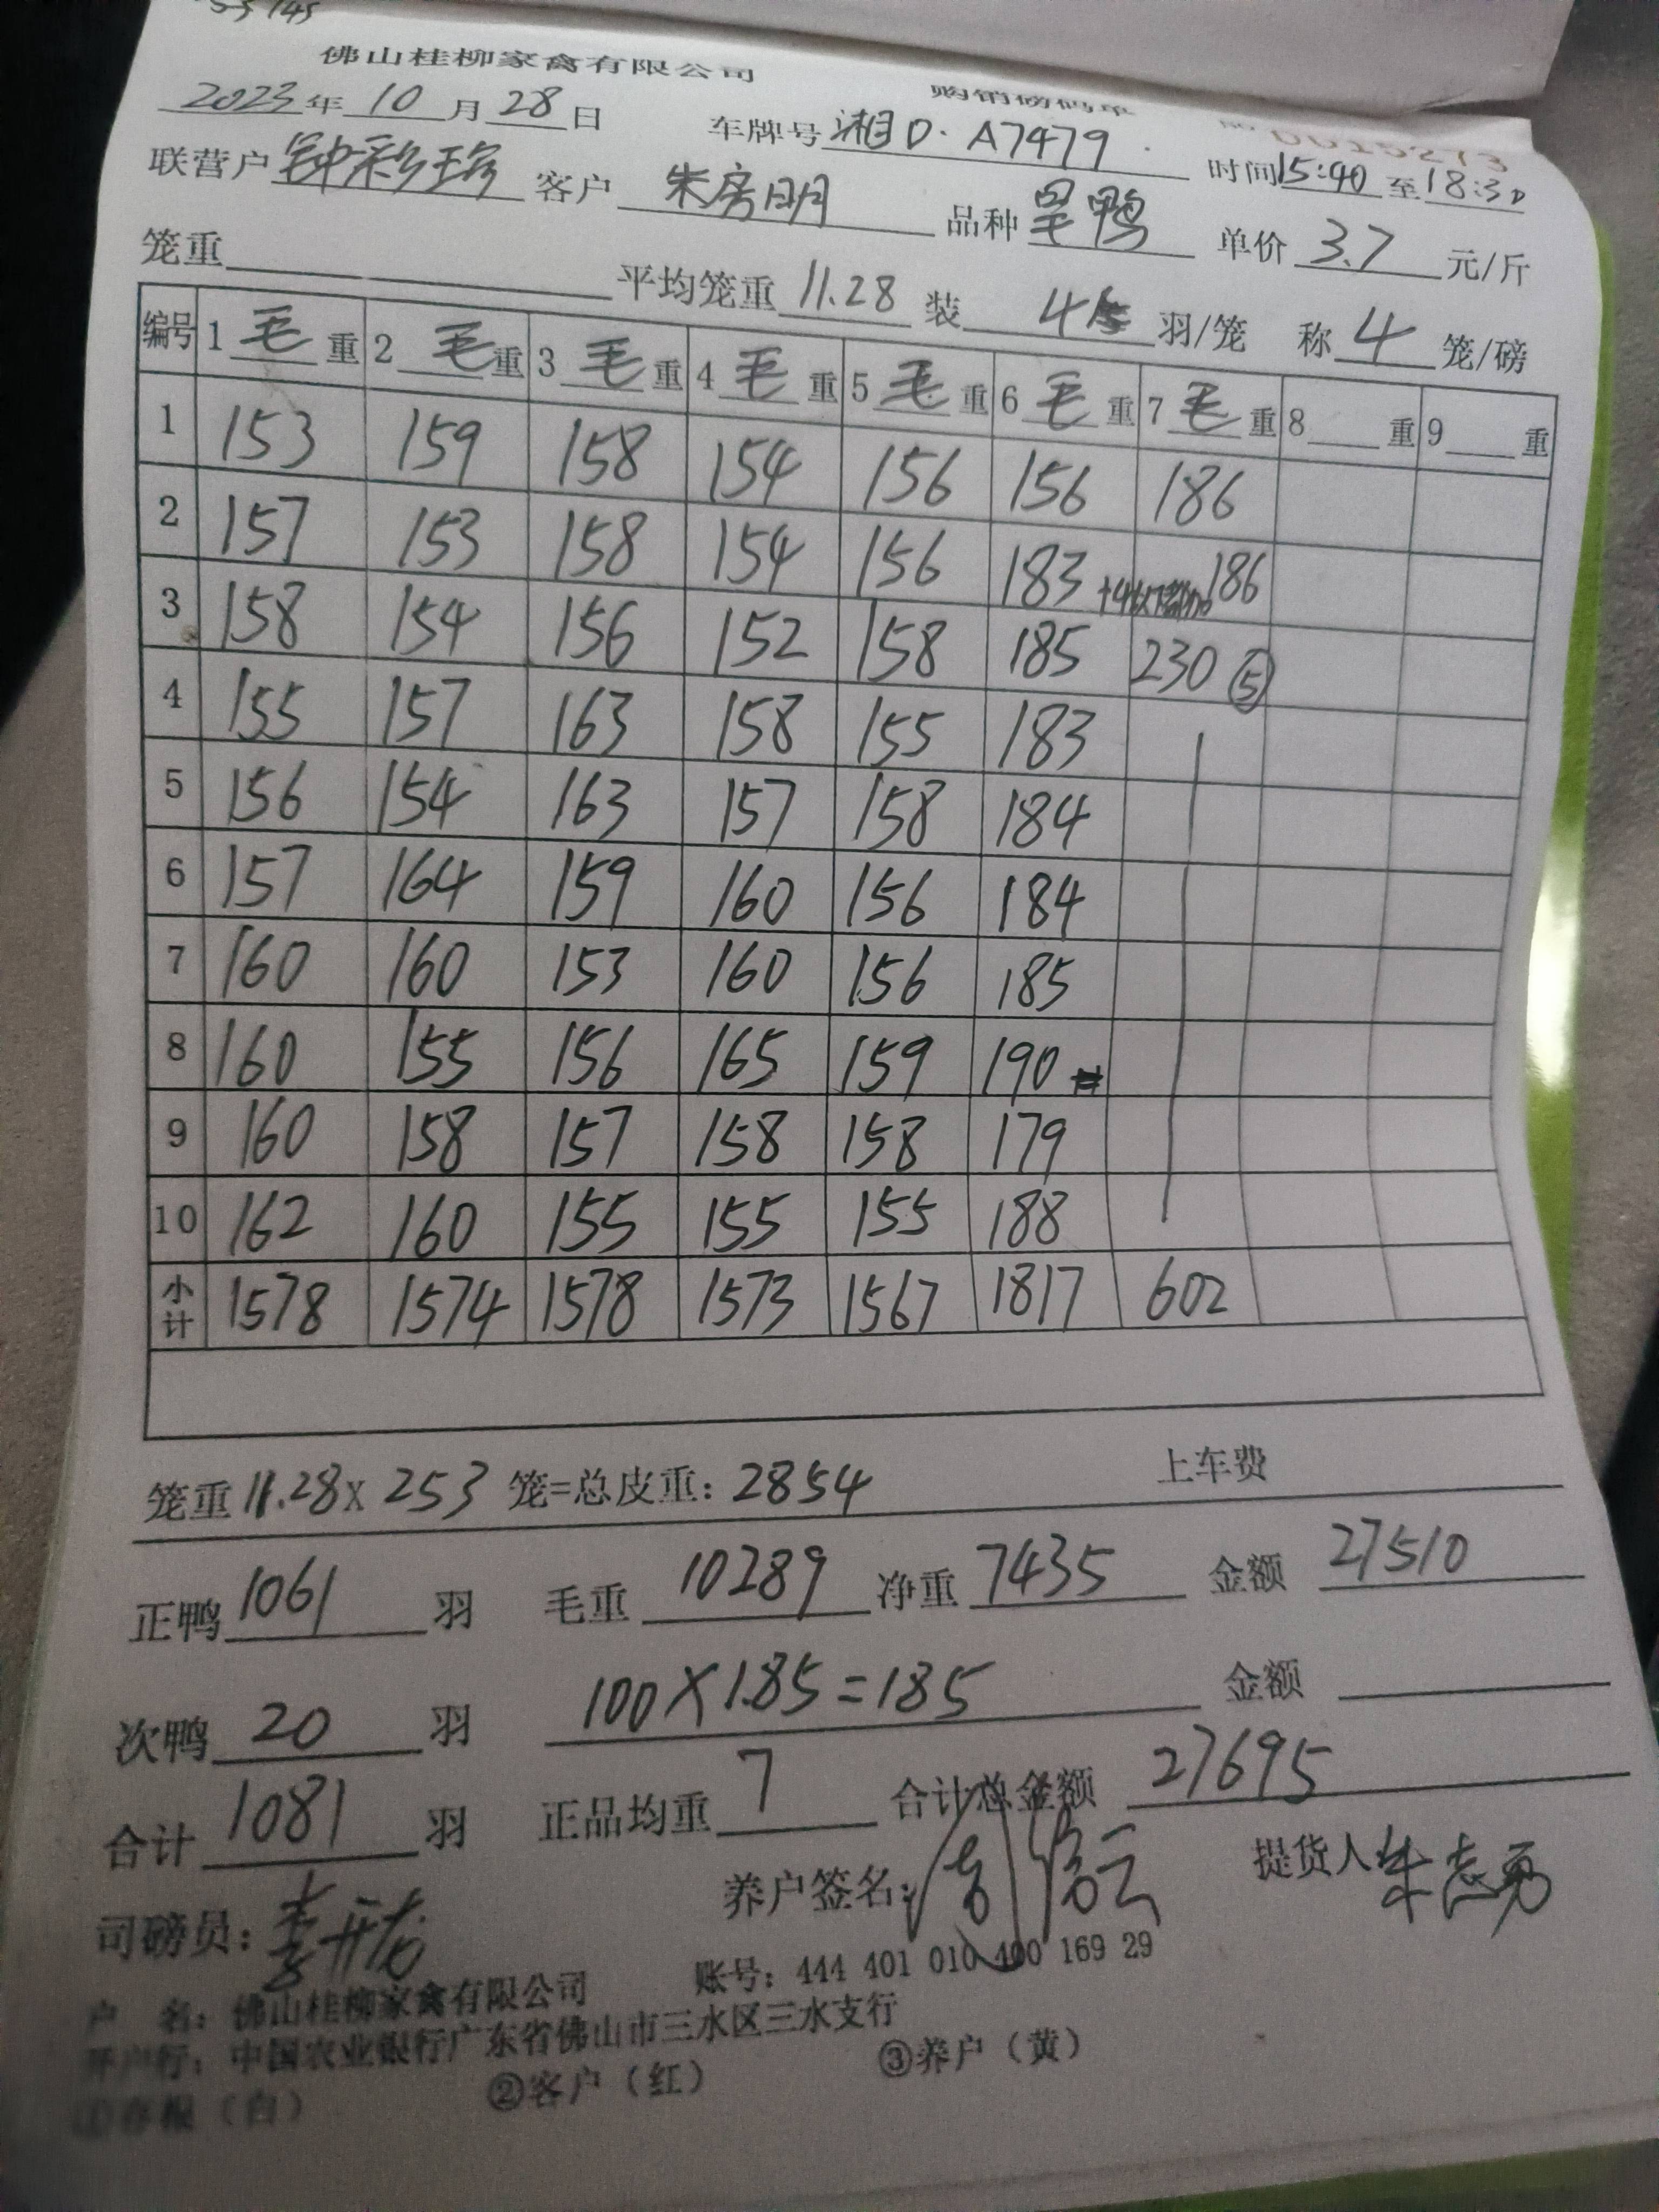 佛山桂柳家禽有限公司 购销磅码单
2023年 10 月 28 日 车牌号 湘D·A7479 0015273
联营户 钟彩 客户 朱房明 品种 鸭 时间15:40 至18:30
笼重 平均笼重 11.28 装 4 羽/笼 单价 3.7 元/斤
称 4 笼/磅
编号 1 毛 重 2 毛 重 3 毛 重 4 毛 重 5 毛 重 6 毛 重 7 毛 重 8 重 9 重
1 153 159 158 154 156 156 186
2 157 153 158 154 156 183 186
3 158 154 156 152 158 185 230 ⑤
4 155 157 163 158 155 183
5 156 154 163 157 158 184
6 157 164 159 160 156 184
7 160 160 153 160 156 185
8 160 155 156 165 159 190
9 160 158 157 158 158 179
10 162 160 155 155 155 188
小计 1578 1574 1578 1573 1567 1817 602
笼重 11.28 x 253 笼=总皮重: 2854 上车费
正鸭 1061 羽 毛重 10289 净重 7435 金额 27510
次鸭 20 羽 100×1.85=185 金额
合计 1081 羽 正品均重 7 合计总金额 27695
司磅员: 李开 养户签名: 提货人 朱志勇
户 名: 佛山桂柳家禽有限公司 账号: 444 401 010 400 169 29
开户行: 中国农业银行广东省佛山市三水区三水支行
①存根（白） ②客户（红） ③养户（黄）